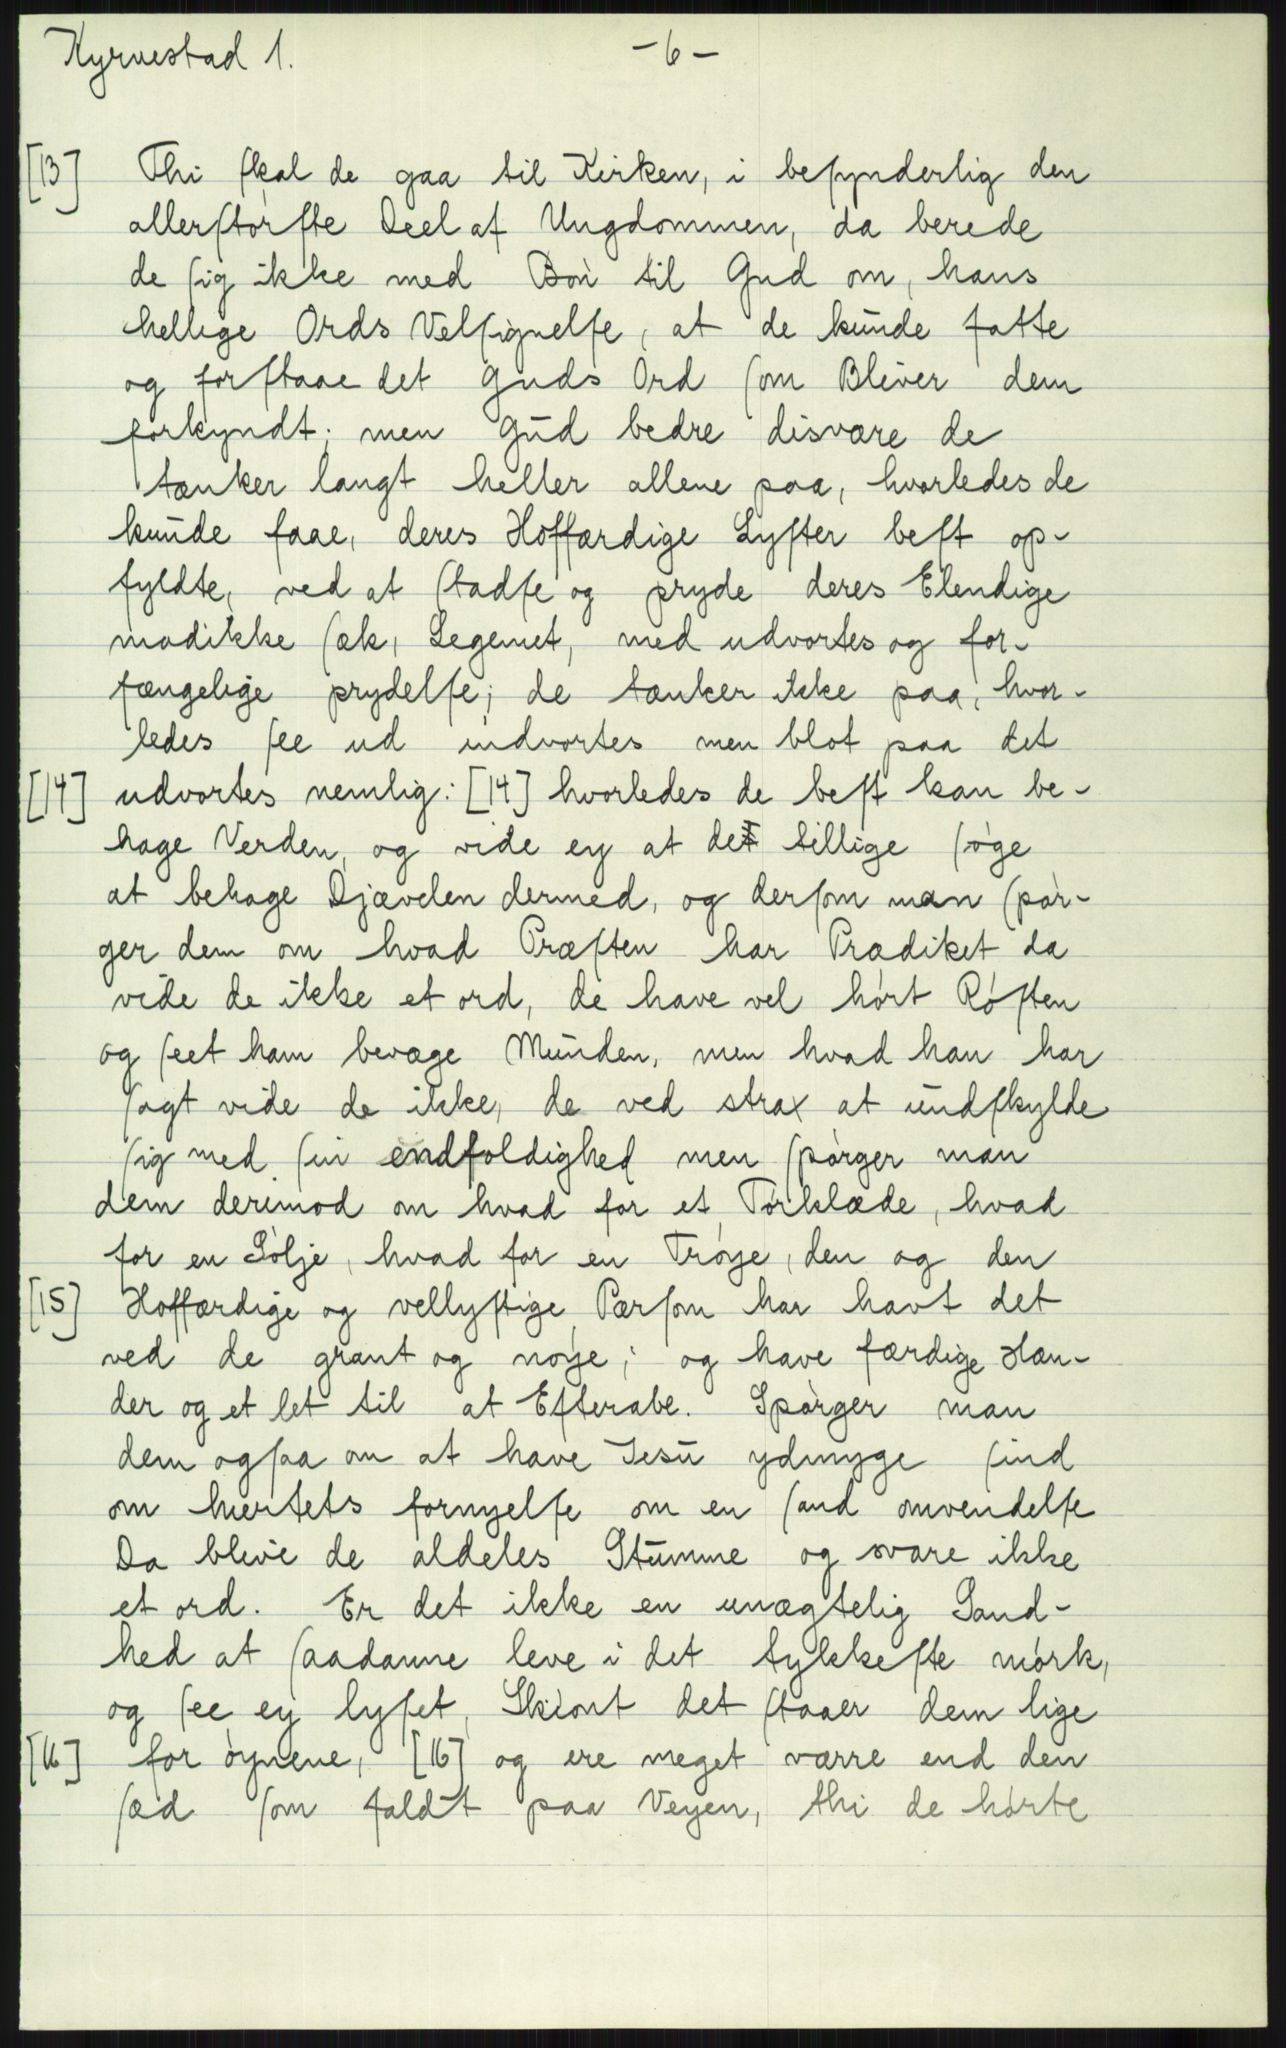 Kyrvestad 1. -6-
[13] Thi ſkal de gaa til Kirken, i beſynderlig den
allerſtórſte Deel af Ungdommen, da berede
de ſig ikke med Bón til Gud om, hans
hellige Ords Velſignelſe, at de kunde fatte
og forſtaae det Guds Ord ſom Bliver dem
forkyndt; men Gud bedre disvære de
tænker langt heller allene paa, hvorledes de
kunde faae, deres Hoffærdige Lyſter beſt op-
fyldte, ved at ſtadſe og pryde deres Elendige
madikke ſæk, Legemet, med udvortes og for-
fængelige prydelſe; de tænker ikke paa, hvor-
ledes ſee ud indvortes men blot paa det
[14] udvortes nemlig: [14] hvorledes de beſt kan be-
hage Verden, og vide ey at det tillige ſóge
at behage Djævelen dermed, og derſom man ſpór-
ger dem om hvad Præſten har Prædiket da
vide de ikke et ord, de have vel hórt Róſten
og ſeet ham bevæge Munden, men hvad han har
ſagt vide de ikke, de ved strax at undſkylde
ſig med ſin endfoldighed men ſpórger man
dem derimod om hvad for et Tórklæde, hvad
for en Sólje, hvad for en Tróye, den og den
[15] Hoffærdige og vellyſtige Pærſom har havt det
ved de grant og nóye; og have færdige Hæn-
der og et let til at Efterabe. Spórger man
dem ogſaa om at have Jesu ydmyge ſind
om hiertets fornyelſe om en ſand omvendelſe
Da blive de aldeles Stumme og svare ikke
et ord. Er det ikke en unægtelig Sand-
hed at ſaadanne leve i det tykkeſte mórk,
og ſee ey lyſet, Skiónt det ſtaaer dem lige
[16] for óynene, [16] og ere meget værre end den
ſæd ſom faldt paa Veyen, thi de hórte